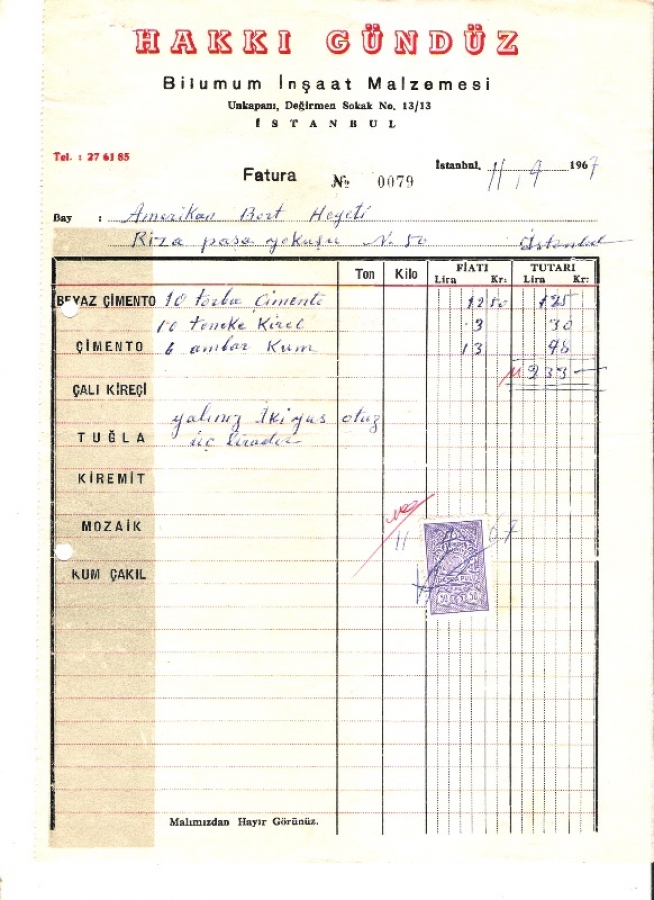 HAKKI GÜNDÜZ
Bilumum İnşaat Malzemesi
Unkapanı, Değirmen Sokak No. 13/13
İSTANBUL
Tel. : 27 61 85
Fatura № 0079
İstanbul, 11, 9 1967
Bay : Amerikan Bort Heyeti
Rıza paşa yokuşu No. 50 İstanbul
Ton Kilo FİATI TUTARI
Lira Kr: Lira Kr:
BEYAZ ÇİMENTO 10 torba Çimento 12 50 125
10 teneke Kireç 3 30
ÇİMENTO 6 ambar Kum 13 78
233
ÇALI KİREÇİ
yalınız İkiyüs otuz
TUĞLA
üç Liradır
KİREMİT
MOZAİK
11
KUM ÇAKIL
Malımızdan Hayır Görünüz.